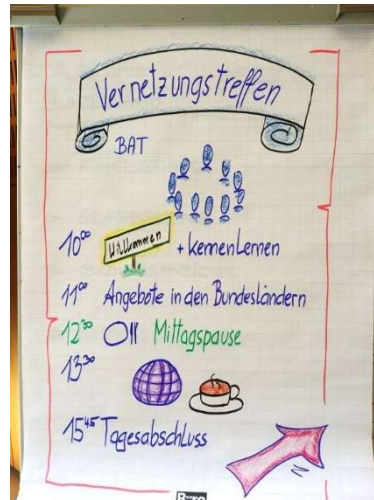 Vernetzungstreffen
BAT
10⁰⁰ Willkommen + kennenLernen
11⁰⁰ Angebote in den Bundesländern
12³⁰ Mittagspause
13³⁰
15⁴⁵ Tagesabschluss
Büro